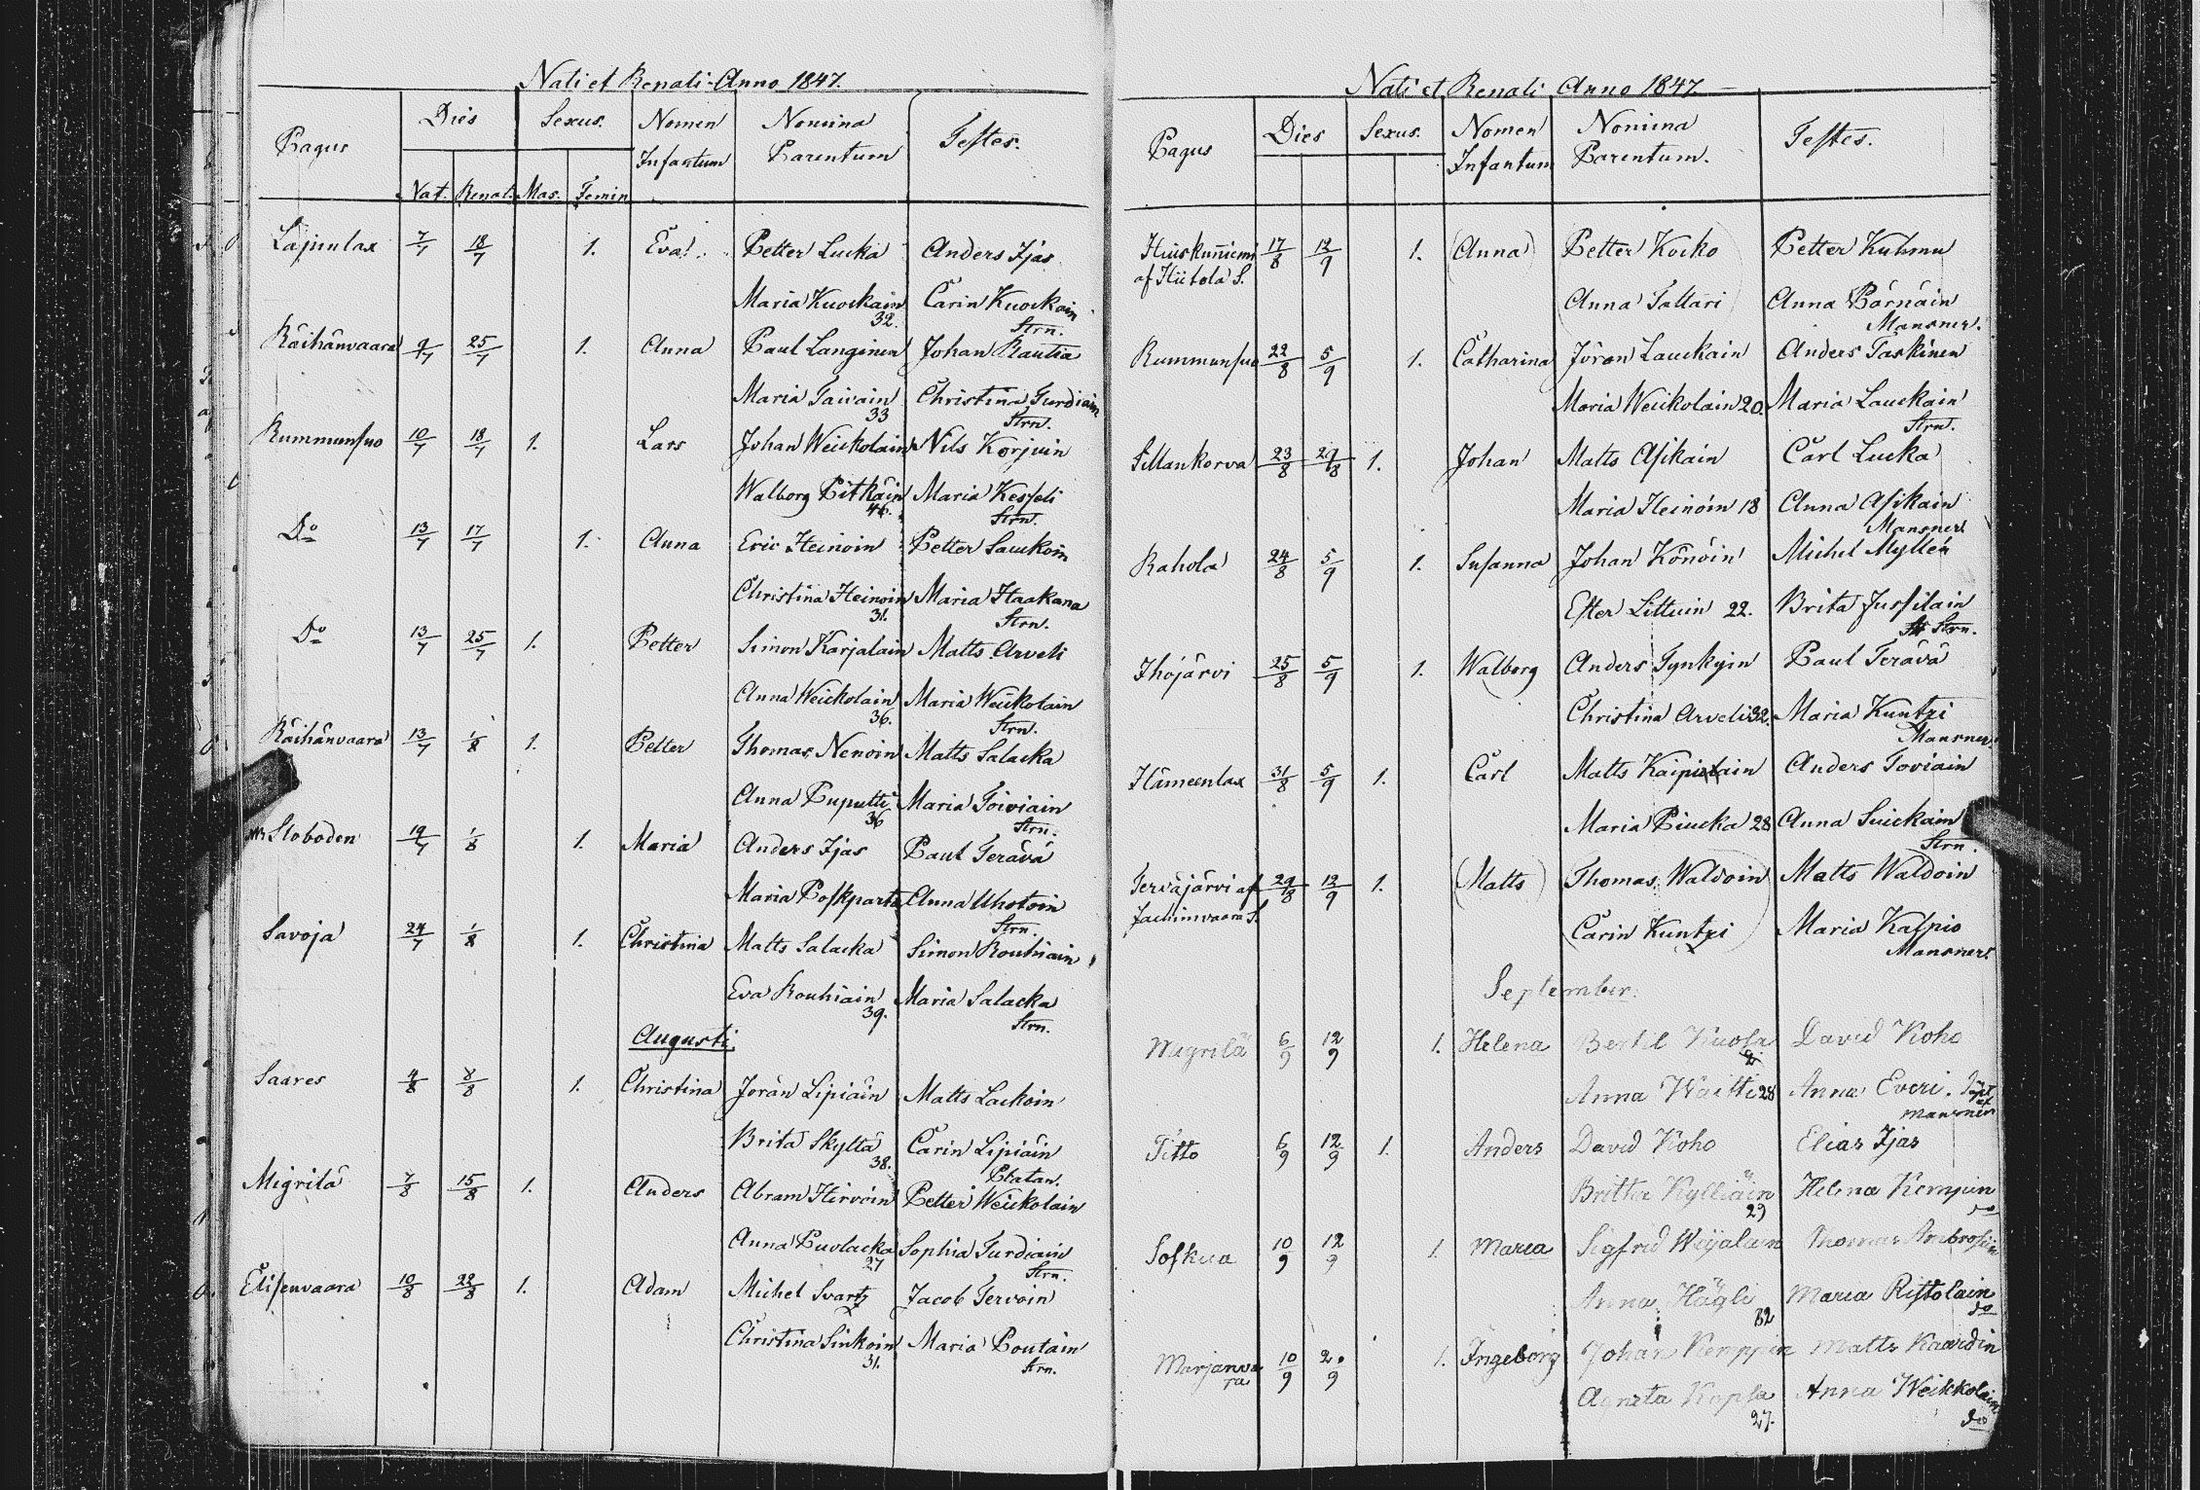 Nati et Renati Anno 1847.
Pagus Dies Sexus. Nomen Infantum Nomina Parentum Testes.
Nat. Renat. Mas. Femin
Lapinlax 7/7 18/7 1. Eva. Petter Lucka Anders Ijas
Maria Kuockain 32. Carin Kuockain Strn.
Räihänvaara 9/7 25/7 1. Anna Paul Langinen Johan Rautia
Maria Taivain 33 Christina Turdiain Strn.
Rummunsuo 10/7 18/7 1. Lars Johan Weickolain Nils Korjuin
Walborg Pitkäin 46. Maria Kesseli Strn.
Do 13/7 17/7 1. Anna Eric Heinoin Petter Lauckoin
Christina Heinoin 31. Maria Haakana Strn.
Do 13/7 25/7 1. Petter Simon Karjalain Matts Arveli
Anna Weickolain 36. Maria Weickolain Strn.
Räihänvaara 13/7 1/8 1. Petter Thomas Nenoin Matts Salacka
Anna Puputti 36 Maria Toiviain Strn.
Sloboden 19/7 1/8 1. Maria Anders Ijas Paul Terävä
Maria Poskparta Anna Uhotoin Strn.
Savoja 24/7 1/8 1. Christina Matts Salacka Simon Rouhiain
Eva Rouhiain 39. Maria Salacka Strn.
Augusti
Saares 4/8 8/8 1. Christina Jöran Lipiäin Matts Lackoin
Brita Skyttä 38. Carin Lipiäin
Migrilä 7/8 15/8 1. Anders Abram Hirvoin Petter Weickolain
Anna Puolacka 27 Sophia Turdiain Strn.
Elisenvaara 10/8 22/8 1. Adam Michel Svartz Jacob Tervoin
Christina Sinkoin 31. Maria Poutain Strn.
Nati et Renati Anno 1847
Pagus Dies Sexus. Nomen Infantum Nomina Parentum. Testes.
af Hiitola S. 17/8 12/9 1. (Anna) Petter Kocko Petter Kuhmu
Anna Tattari Anna Pärnäin Mansner.
Rummunsuo 22/8 5/9 1. Catharina Jöran Lauckain Anders Taskinen
Maria Weickolain 20. Maria Lauckain Strn.
Sillankorva 23/8 29/8 1. Johan Matts Asikain Carl Lucka
Maria Heinoin 18 Anna Asikain Mansner
Rahola 24/8 5/9 1. Susanna Johan Könöin Michel Myllén
Ester Littuin 22. Brita Jussilain Strn.
Ihojärvi 25/8 5/9 1. Walborg Anders Tynkyin Paul Terävä
Christina Arveli 32. Maria Kuntzi Mansner.
Hämeenlax 31/8 5/9 1. Carl Matts Kaipiain Anders Toviain
Maria Piucka 28 Anna Suickain Strn.
Tervajärvi af Jachimvaara S. 29/8 12/9 1. (Matts) Thomas Waldoin Matts Waldoin
Carin Kuntzi Maria Kalpio Mansner.
September.
Migrilä 6/9 12/9 1. Helena Bertil Kuosa David Koho
Anna Waitti 28 Anna Everi. mansner
Titto 6/9 12/9 1. Anders David Koho Elias Ijas
Britta Kylliäin 29 Helena Kempin do
Soskua 10/9 12/9 1. Maria Sigfrid Weijalain Thomas Ambrosin
Anna Hägli 32 Maria Ristolain do
Marjanvaara 10/9 20/9 1. Ingeborg Johan Kemppin Matts Kaardin
Agneta Kopla 27. Anna Weikkolain do